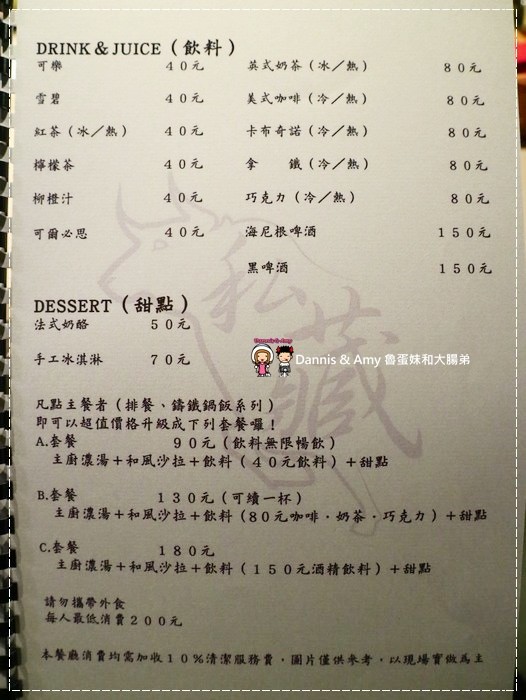 DRINK & JUICE（飲料）
可樂 ４０元 英式奶茶（冰／熱） ８０元
雪碧 ４０元 美式咖啡（冷／熱） ８０元
紅茶（冰／熱） ４０元 卡布奇諾（冷／熱） ８０元
檸檬茶 ４０元 拿　鐵（冷／熱） ８０元
柳橙汁 ４０元 巧克力（冷／熱） ８０元
可爾必思 ４０元 海尼根啤酒 １５０元
黑啤酒 １５０元
DESSERT（甜點）
法式奶酪 ５０元
手工冰淇淋 ７０元
Dannis & Amy
Dannis & Amy 魯蛋妹和大腸弟
私藏
凡點主餐者（排餐、鑄鐵鍋飯系列）
即可以超值價格升級成下列套餐囉！
A.套餐 ９０元（飲料無限暢飲）
主廚濃湯＋和風沙拉＋飲料（４０元飲料）＋甜點
B.套餐 １３０元（可續一杯）
主廚濃湯＋和風沙拉＋飲料（80元咖啡．奶茶．巧克力）＋甜點
C.套餐 １８０元
主廚濃湯＋和風沙拉＋飲料（１５０元酒精飲料）＋甜點
請勿攜帶外食
每人最低消費２００元
本餐廳消費均需加收１０％清潔服務費，圖片僅供參考，以現場實做為主